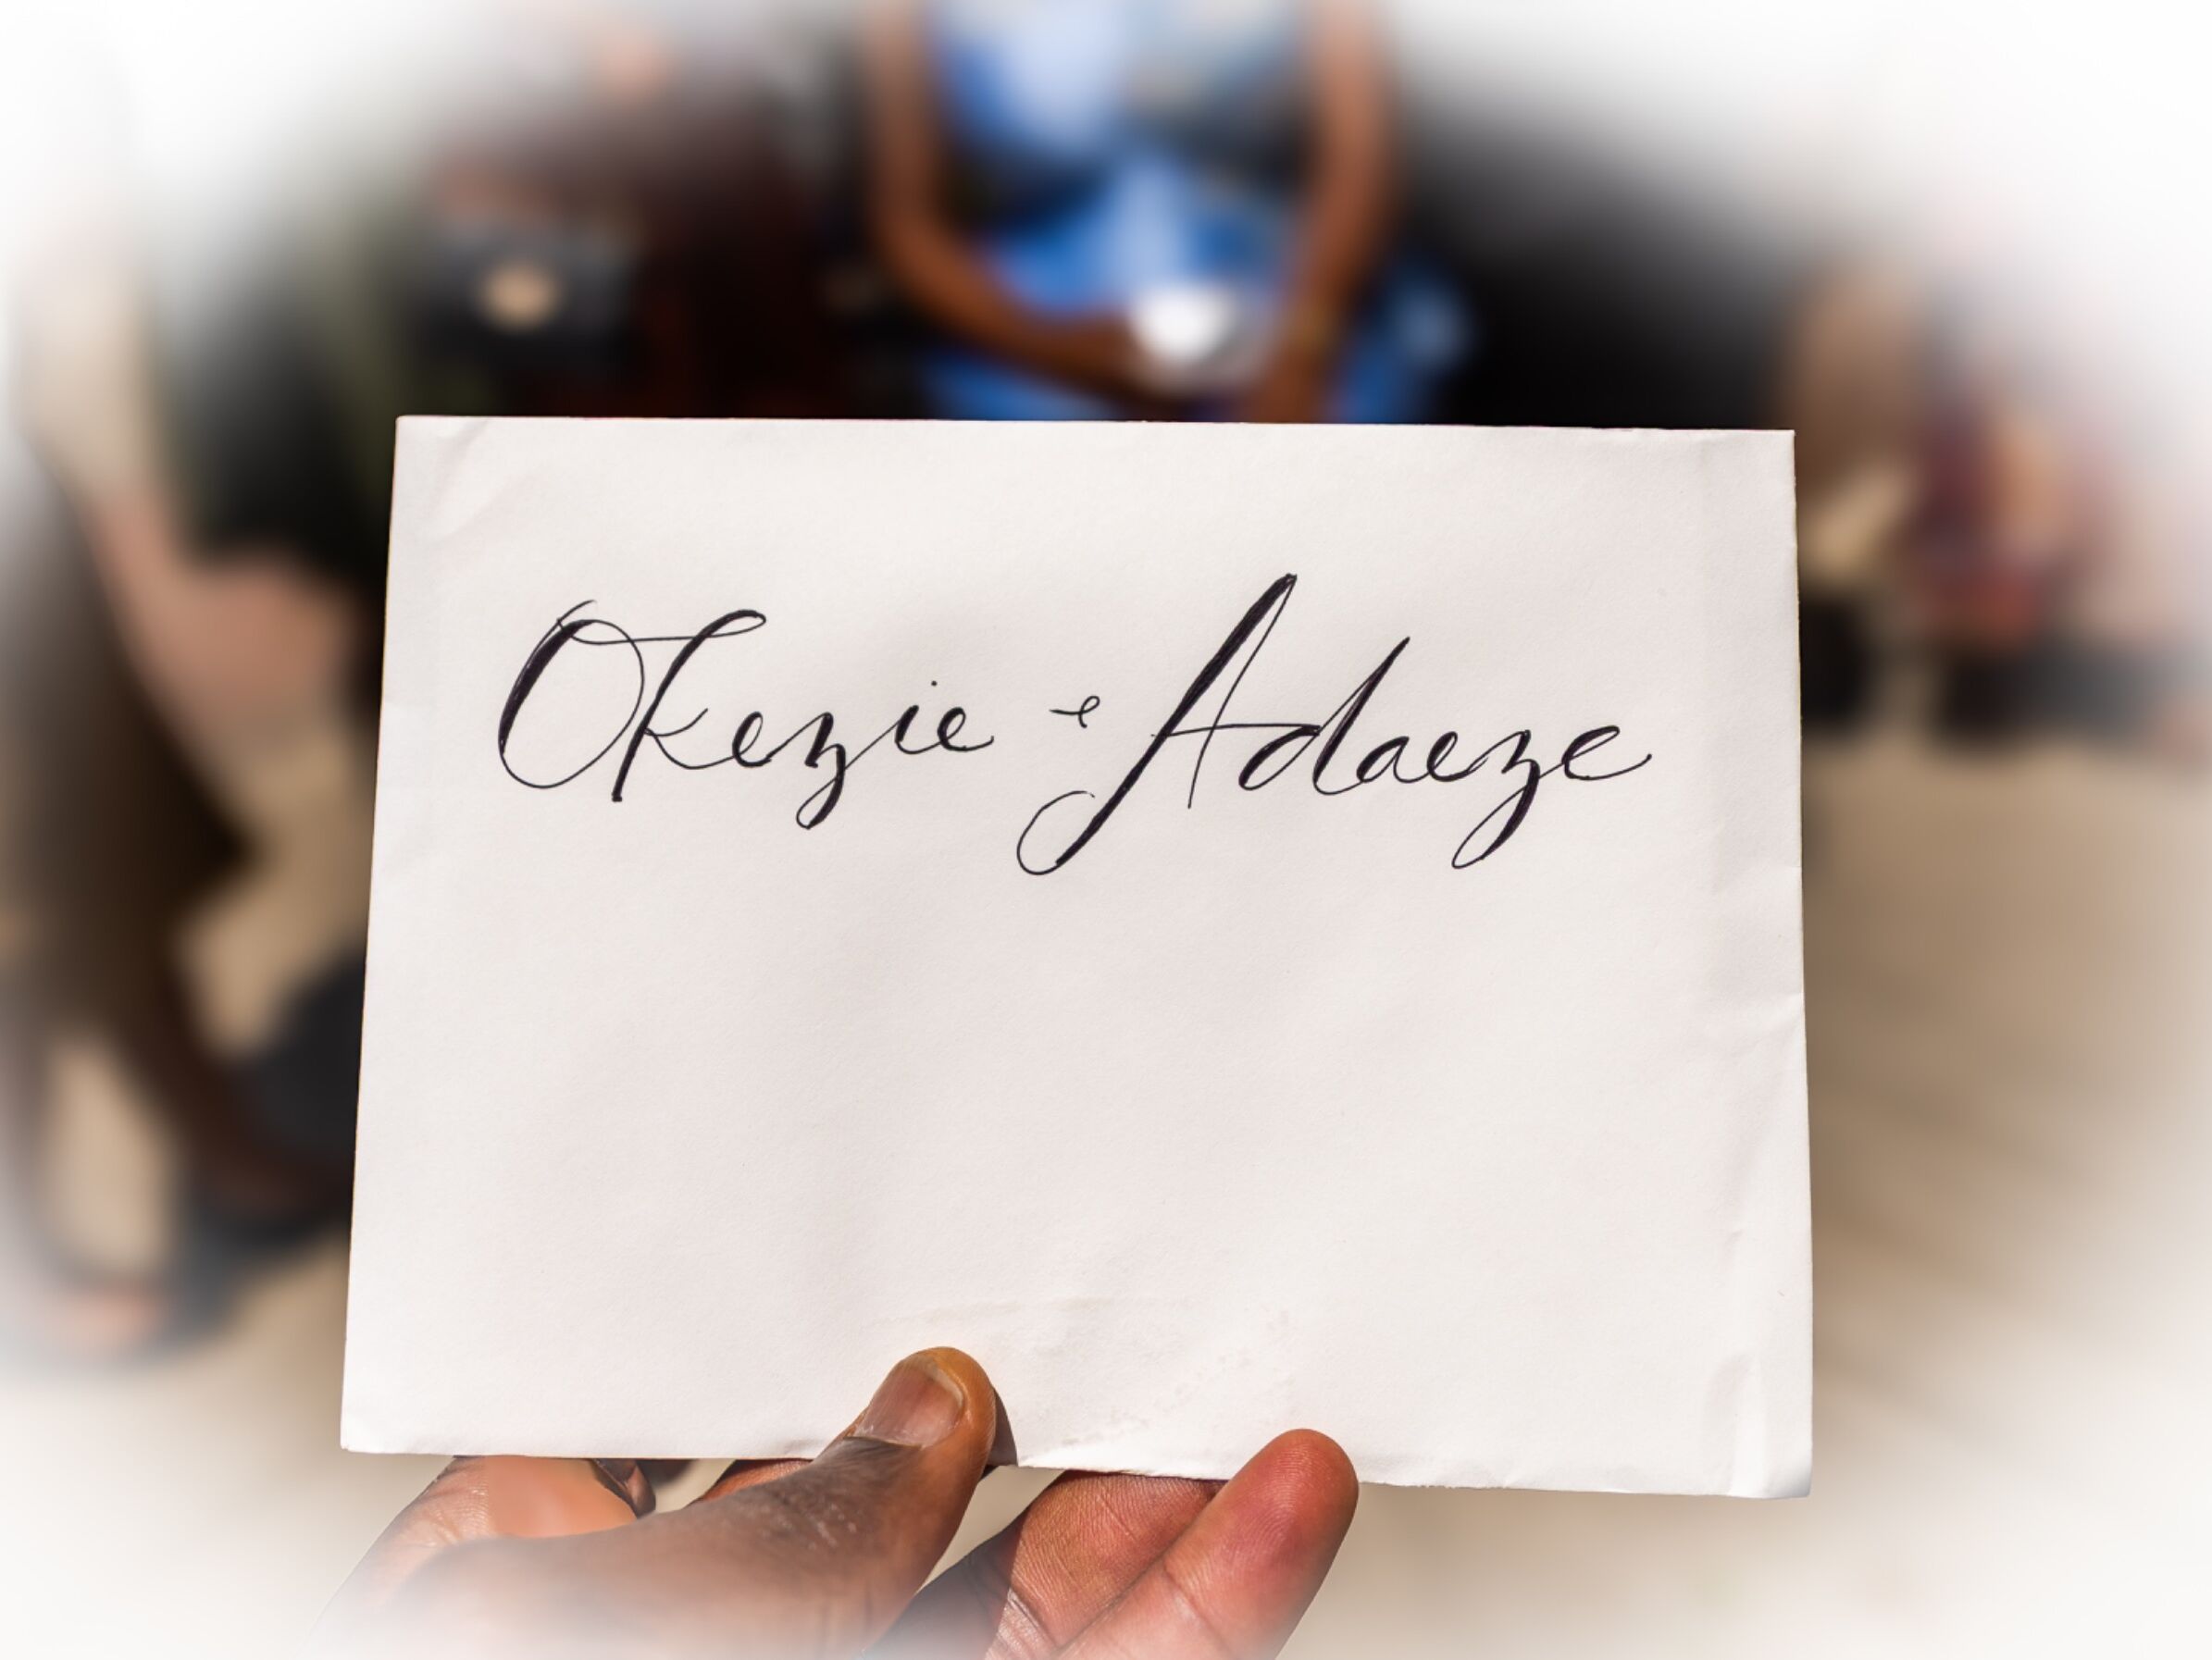 Okezie & Adaeze